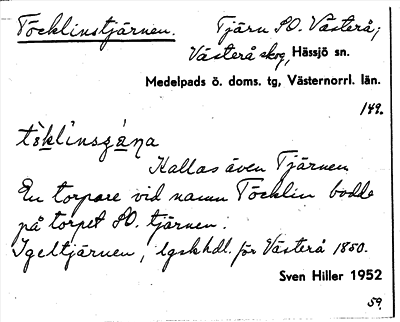 Töcklinstjärnen. Tjärn SO. Västerå,
Västerå skog, Hässjö sn.
Medelpads ö. doms. tg, Västernorrl. län.
149.
Kallas även Tjärnen
En torpare vid namn Töcklin bodde
på torpet SO. tjärnen.
Igeltjärnen, lgskhdl. för Västerå 1850.
Sven Hiller 1952
59.